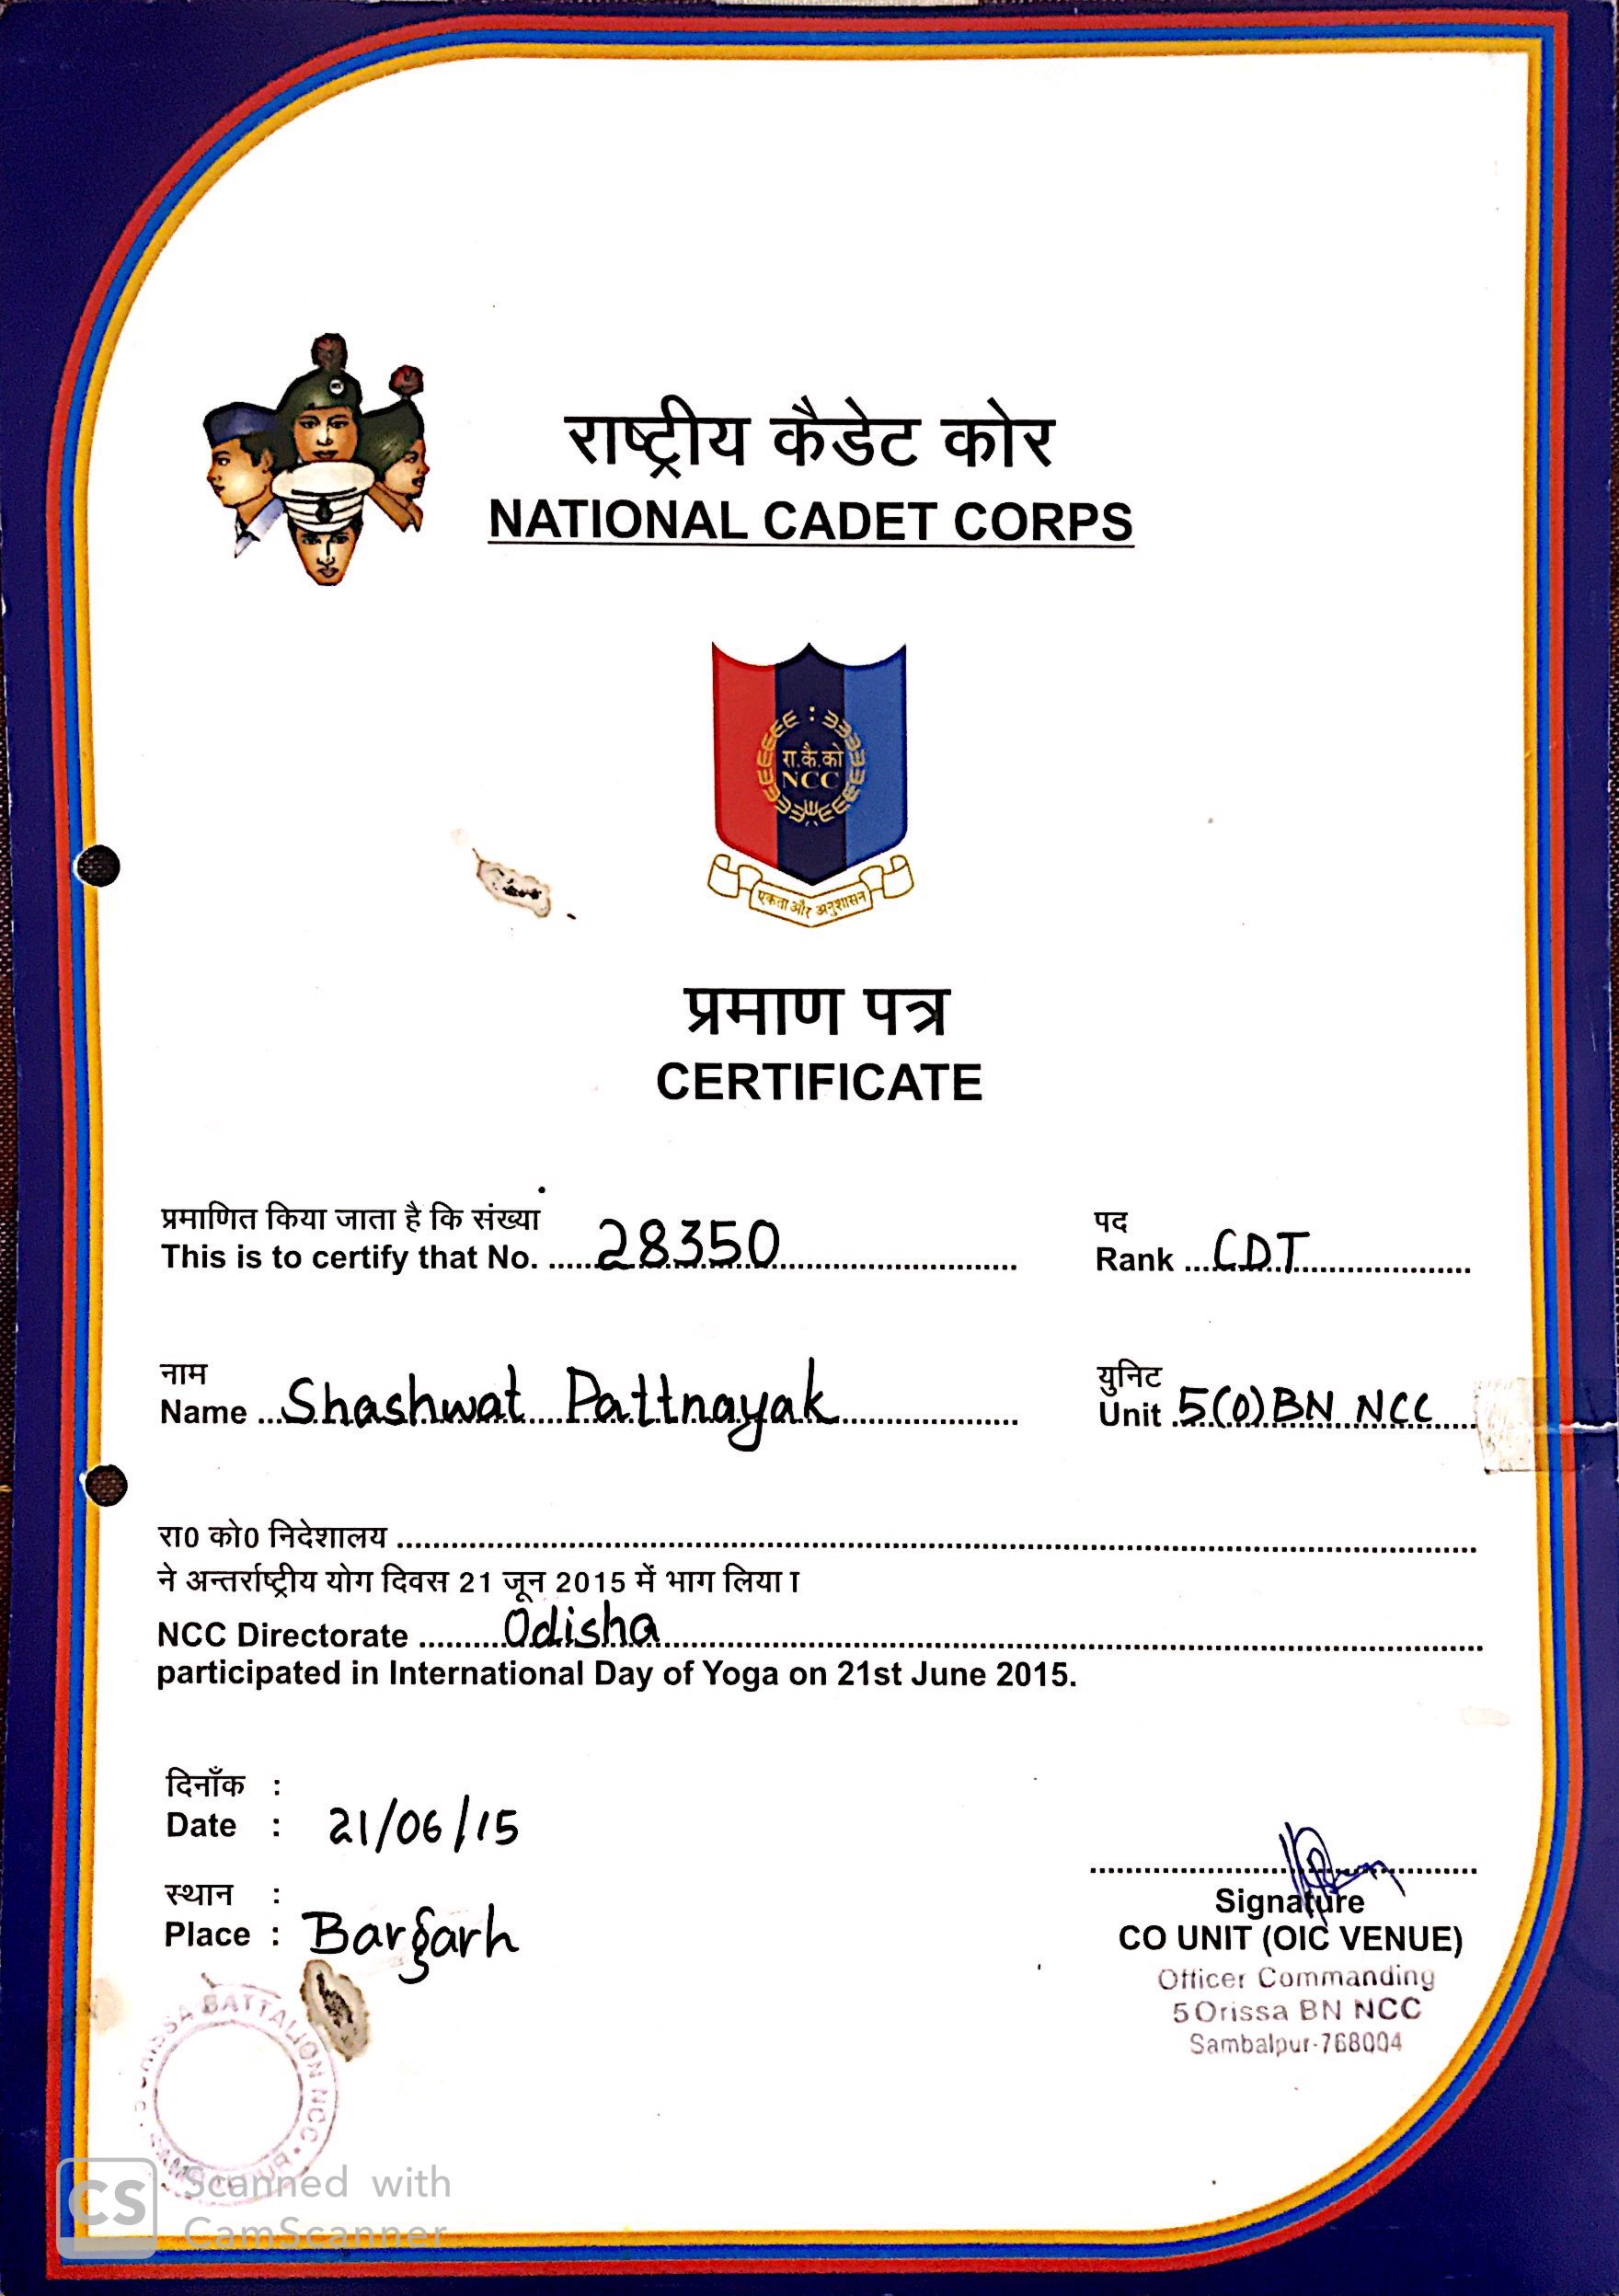 राष्ट्रीय कैडेट कोर
NATIONAL CADET CORPS
रा.कै.को
NCC
एकता और अनुशासन
प्रमाण पत्र
CERTIFICATE
प्रमाणित किया जाता है कि संख्या
This is to certify that No. ...... 28350 ......
पद
Rank ... CDT ......
नाम
Name ... Shashwat Pattnayak ......
युनिट
Unit . 5(O) BN NCC ......
रा0 को0 निदेशालय ......
ने अन्तर्राष्ट्रीय योग दिवस 21 जून 2015 में भाग लिया ।
NCC Directorate ...... Odisha ......
participated in International Day of Yoga on 21st June 2015.
दिनाँक :
Date : 21/06/15
स्थान :
Place : Bargarh
Signature
CO UNIT (OIC VENUE)
Officer Commanding
5 Orissa BN NCC
Sambalpur-768004
BATTALION NCC
CS Scanned with
CamScanner